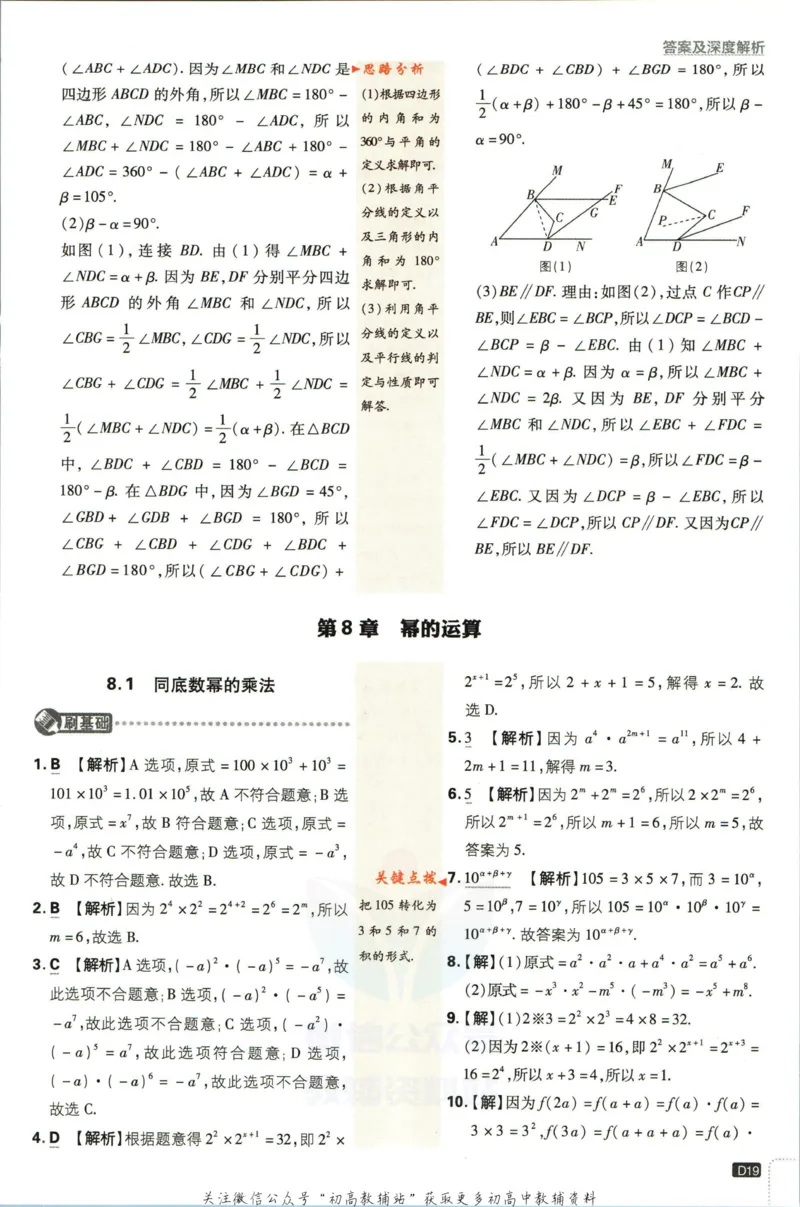 答案及深度解析
(∠ABC + ∠ADC). 因为∠MBC 和∠NDC 是
四边形 ABCD 的外角,所以∠MBC = 180° -
∠ABC, ∠NDC = 180° - ∠ADC, 所以
∠MBC + ∠NDC = 180° - ∠ABC + 180° -
∠ADC = 360° - (∠ABC + ∠ADC) = α +
β = 105°.
(2)β - α = 90°.
如图(1),连接 BD. 由(1)得∠MBC +
∠NDC = α + β. 因为 BE,DF 分别平分四边
形 ABCD 的外角∠MBC 和∠NDC,所以
∠CBG = 1/2 ∠MBC, ∠CDG = 1/2 ∠NDC,所以
∠CBG + ∠CDG = 1/2 ∠MBC + 1/2 ∠NDC =
1/2(∠MBC + ∠NDC) = 1/2(α + β). 在△BCD
中, ∠BDC + ∠CBD = 180° - ∠BCD =
180° - β. 在△BDG 中,因为∠BGD = 45°,
∠GBD + ∠GDB + ∠BGD = 180°, 所以
∠CBG + ∠CBD + ∠CDG + ∠BDC +
∠BGD = 180°,所以(∠CBG + ∠CDG) +
思路分析
(1)根据四边形
的内角和为
360°与平角的
定义求解即可.
(2)根据角平
分线的定义以
及三角形的内
角和为 180°
求解即可.
(3)利用角平
分线的定义以
及平行线的判
定与性质即可
解答.
(∠BDC + ∠CBD) + ∠BGD = 180°, 所以
1/2(α + β) + 180° - β + 45° = 180°,所以 β -
α = 90°.
M
B
F
E
G
C
A
D
N
图(1)
M
E
B
P
C
F
A
D
N
图(2)
(3)BE∥DF. 理由:如图(2),过点 C 作CP∥
BE,则∠EBC = ∠BCP,所以∠DCP = ∠BCD -
∠BCP = β - ∠EBC. 由(1)知∠MBC +
∠NDC = α + β. 因为 α = β,所以∠MBC +
∠NDC = 2β. 又因为 BE, DF 分别平分
∠MBC 和∠NDC,所以∠EBC + ∠FDC =
1/2(∠MBC + ∠NDC) = β,所以∠FDC = β -
∠EBC. 又因为∠DCP = β - ∠EBC,所以
∠FDC = ∠DCP,所以 CP∥DF. 又因为CP∥
BE,所以 BE∥DF.
第8章 幂的运算
8.1 同底数幂的乘法
刷基础
1. B 【解析】A 选项,原式 = 100 × 10³ + 10³ =
101 × 10³ = 1.01 × 10⁵,故 A 不符合题意;B 选
项,原式 = x⁷,故 B 符合题意;C 选项,原式 =
-a⁴,故 C 不符合题意;D 选项,原式 = -a³,
故 D 不符合题意. 故选 B.
2. B 【解析】因为 2⁴ × 2² = 2⁴⁺² = 2⁶ = 2ᵐ,所以
m = 6,故选 B.
3. C 【解析】A 选项,(-a)² · (-a)⁵ = -a⁷,故
此选项不合题意;B 选项,(-a)² · (-a⁵) =
-a⁷,故此选项不合题意;C 选项,(-a²) ·
(-a)⁵ = a⁷,故此选项符合题意;D 选项,
(-a) · (-a)⁶ = -a⁷,故此选项不合题意,
故选 C.
4. D 【解析】根据题意得 2² × 2ˣ⁺¹ = 32,即 2² ×
关键点拨
把 105 转化为
3 和 5 和 7 的
积的形式.
2ˣ⁺¹ = 2⁵,所以 2 + x + 1 = 5,解得 x = 2. 故
选 D.
5. 3 【解析】因为 a⁴ · a²ᵐ⁺¹ = a¹¹,所以 4 +
2m + 1 = 11,解得 m = 3.
6. 5 【解析】因为 2ᵐ + 2ᵐ = 2⁶,所以 2 × 2ᵐ = 2⁶,
所以 2ᵐ⁺¹ = 2⁶,所以 m + 1 = 6,所以 m = 5,故
答案为 5.
7. 10^(α+β+γ) 【解析】105 = 3 × 5 × 7,而 3 = 10^α,
5 = 10^β,7 = 10^γ,所以 105 = 10^α · 10^β · 10^γ =
10^(α+β+γ). 故答案为 10^(α+β+γ).
8. 【解】(1)原式 = a² · a² · a + a⁴ · a² = a⁵ + a⁶.
(2)原式 = -x³ · x² - m⁵ · (-m³) = -x⁵ + m⁸.
9. 【解】(1)2※3 = 2² × 2³ = 4 × 8 = 32.
(2)因为 2※(x + 1) = 16,即 2² × 2ˣ⁺¹ = 2ˣ⁺³ =
16 = 2⁴,所以 x + 3 = 4,所以 x = 1.
10. 【解】因为 f(2a) = f(a + a) = f(a) · f(a) =
3 × 3 = 3²,f(3a) = f(a + a + a) = f(a) ·
D19
关注微信公众号“初高教辅站”获取更多初高中教辅资料